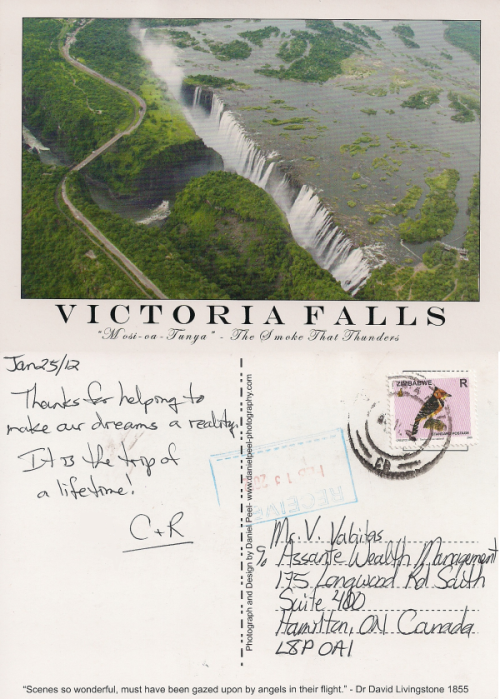 VICTORIA FALLS
"Mosi-oa-Tunya" - The Smoke That Thunders
Jan 25/12
Thanks for helping to
make our dreams a reality.
It is the trip of
a lifetime!
C+R
Photograph and Design by Daniel Peel- www.danielpeel-photography.com
RECEIVED
ZIMBABWE R
Mr. V. Valaitas
c/o Assante Wealth Management
175 Longwood Rd South
Suite 400
Hamilton, ON Canada
L8P 0A1
"Scenes so wonderful, must have been gazed upon by angels in their flight." - Dr David Livingstone 1855